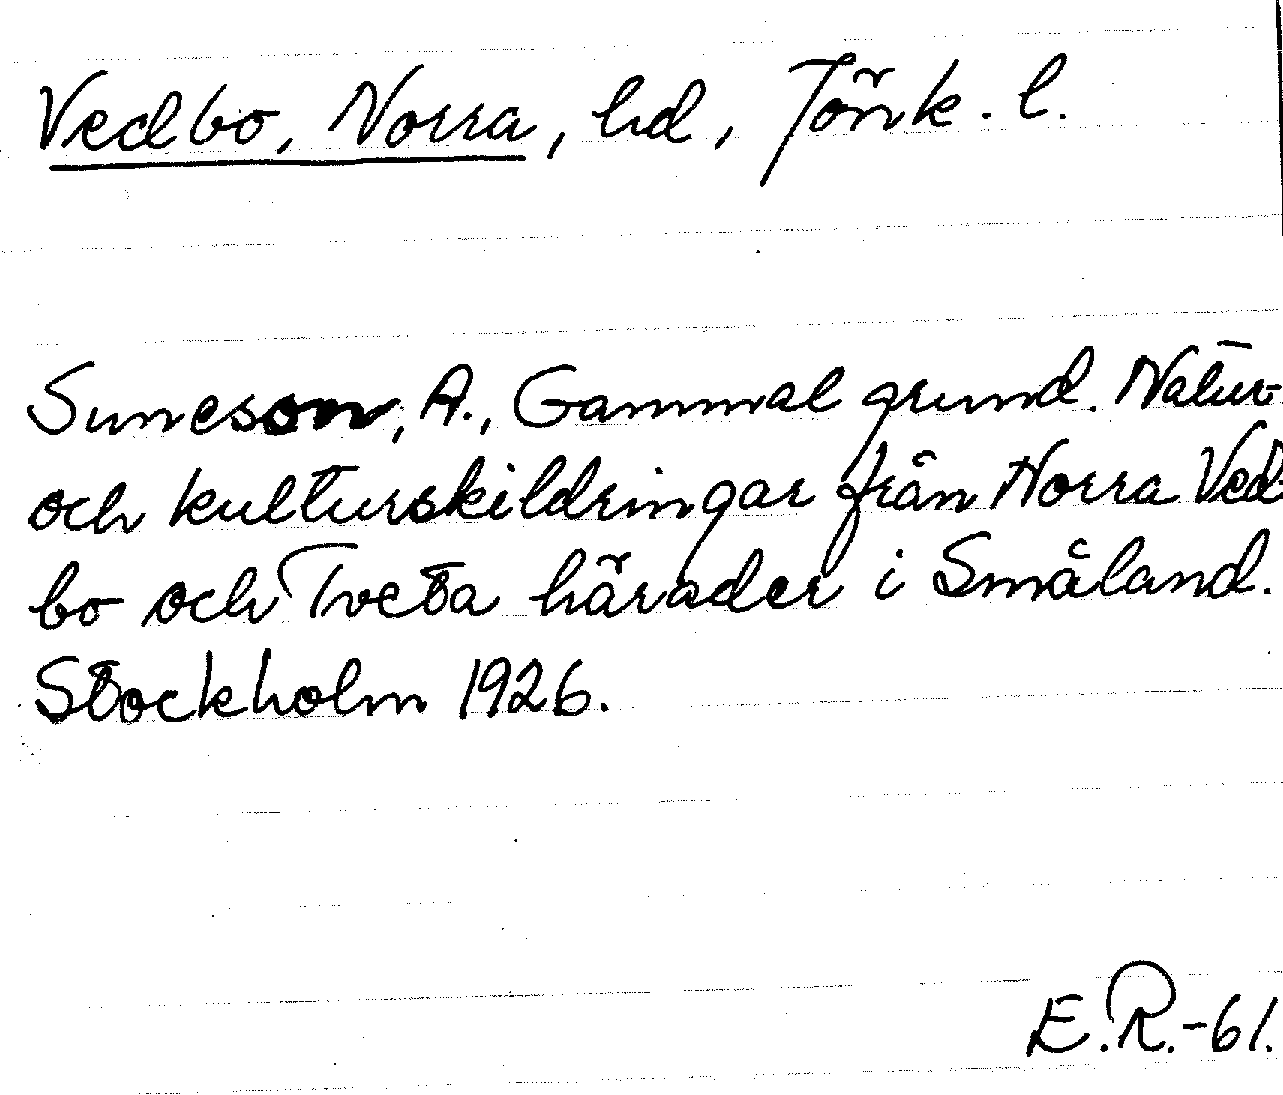 Vedbo, Norra, hd, Jönk. l.
Suneson, A., Gammal grund. Natur-
och kulturskildringar från Norra Ved-
bo och Tveta härader i Småland.
Stockholm 1926.
E.R.-61.